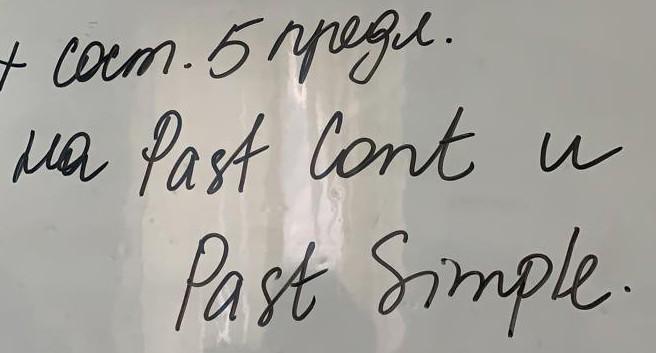 + сост. 5 предл.
на Past Cont и
Past Simple.